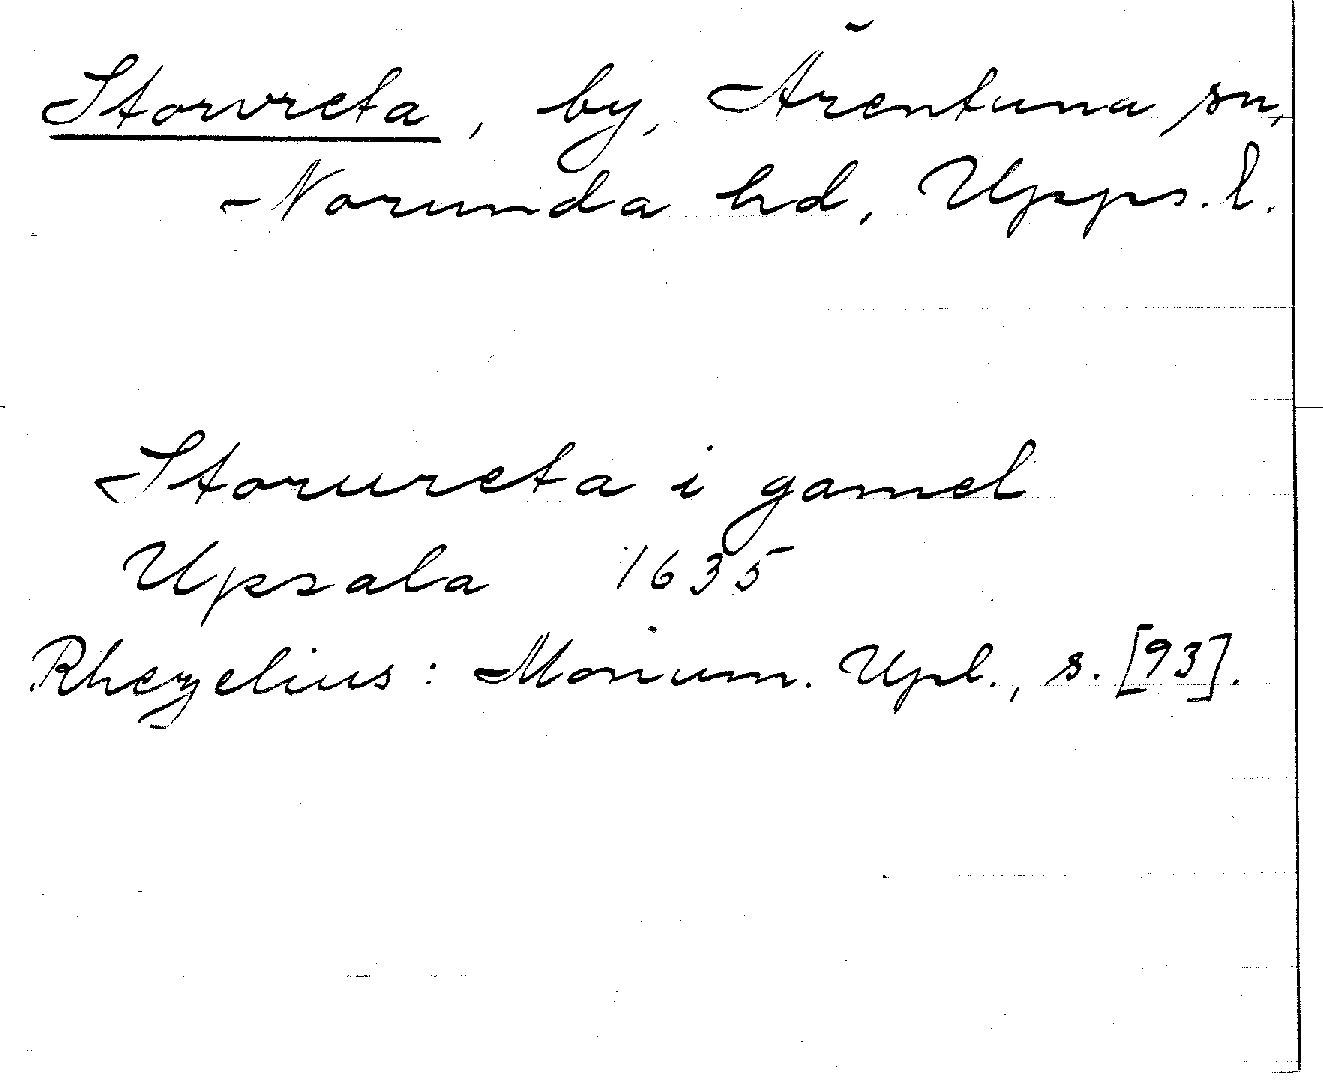 Storvreta, by, Ärentuna sn,
Norunda hd, Upps. l.
Storureta i gamel
Upsala 1635
Rhezelius: Monum. Upl., s. [93].